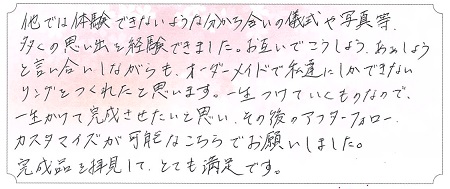 他では体験できないような分かち合いの儀式や写真等、
多くの思い出を経験できました。お互いでこうしょう、ああしょう
と言い合いしながらも、オーダーメイドで私達にしかできない
リングをつくれたと思います。一生つけていくものなので、
一生かけて完成させたいと思い、その後のアフターフォロー、
カスタマイズが可能なこちらでお願いしました。
完成品を拝見して、とても満足です。